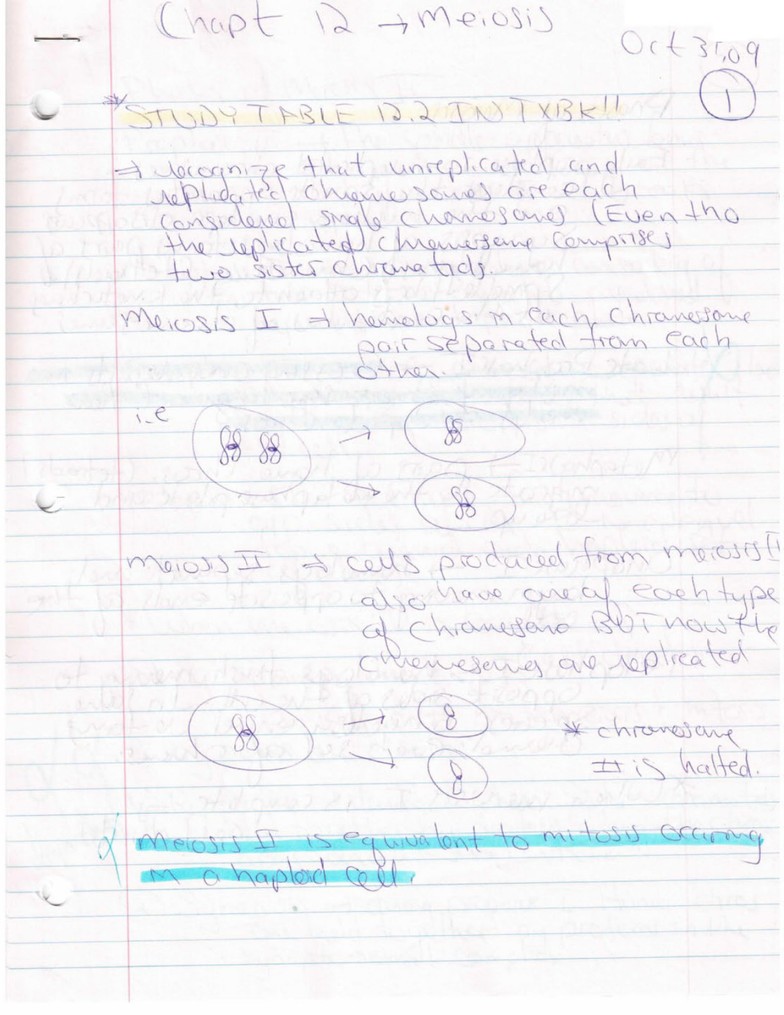 Chapt 12 → Meiosis
Oct 31,09
1
* STUDY TABLE 12.2 IN TXBK!!
→ recognize that unreplicated and
replicated chromosomes are each
considered single chomosomes (Even tho
the replicated chromosome comprises
two sister chromatids.
Meiosis I → homologs in each chromosome
pair separated from each
other.
i.e
meiosis II → cells produced from meiosis I
also have one of each type
of chromosome BUT now the
chromosomes are replicated
* chromosome
# is halted.
Meiosis II is equivalent to mitosis occuring
in a haploid cell.